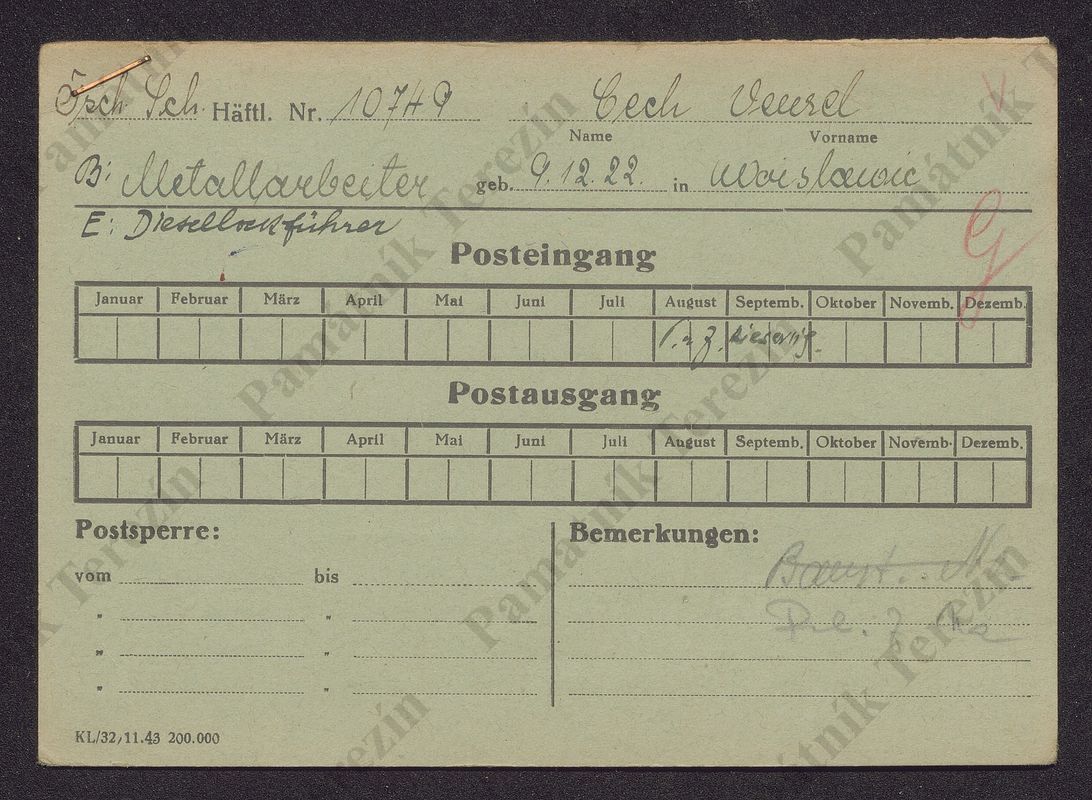 Tsch Sch. Häftl. Nr. 10749 Cech Venzel
Name Vorname
B: Metallarbeiter geb. 9.12.22. in Woislawic
E: Diesellockführer
G
Posteingang
Januar Februar März April Mai Juni Juli August Septemb. Oktober Novemb. Dezemb.
Postausgang
Januar Februar März April Mai Juni Juli August Septemb. Oktober Novemb. Dezemb.
Postsperre: Bemerkungen:
vom bis
" "
" "
" "
KL/32/11.43 200.000
Památník Terezín